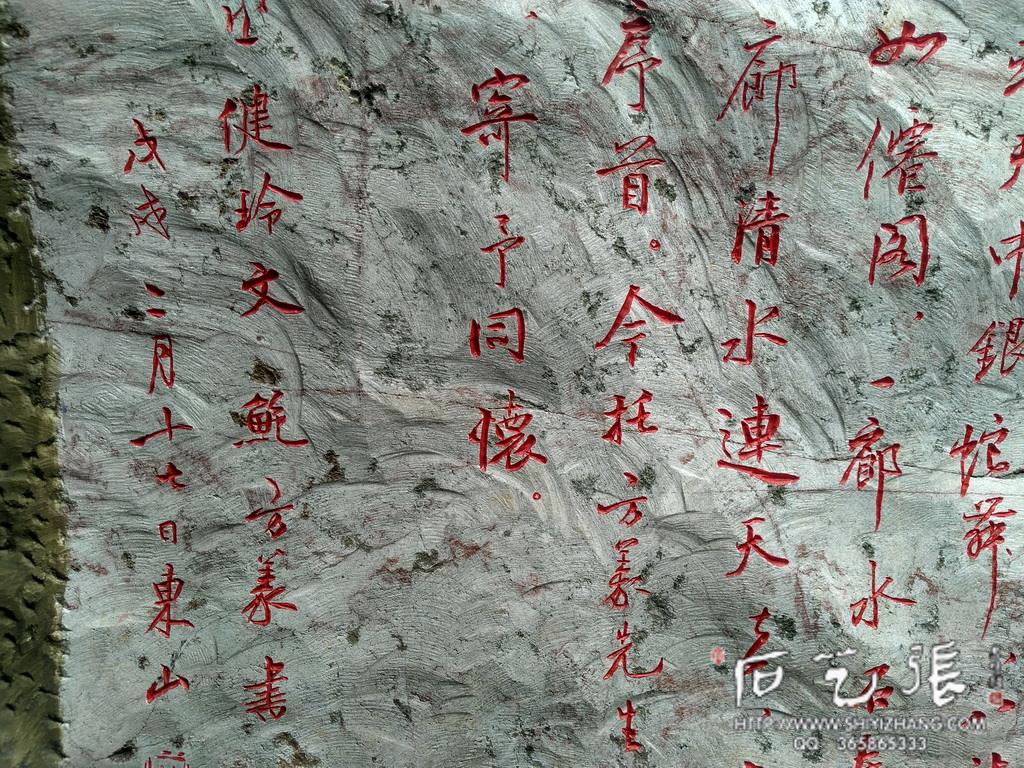 中銀蛇舞
如僊阁.一廊水石
廊清水連天
序首。今托方義先生
寄予同懷。
健玲文鲍方義書
戊戌二月十七日東山
石艺張
HTTP://WWW.SHIYIZHANG.COM
QQ: 365865333